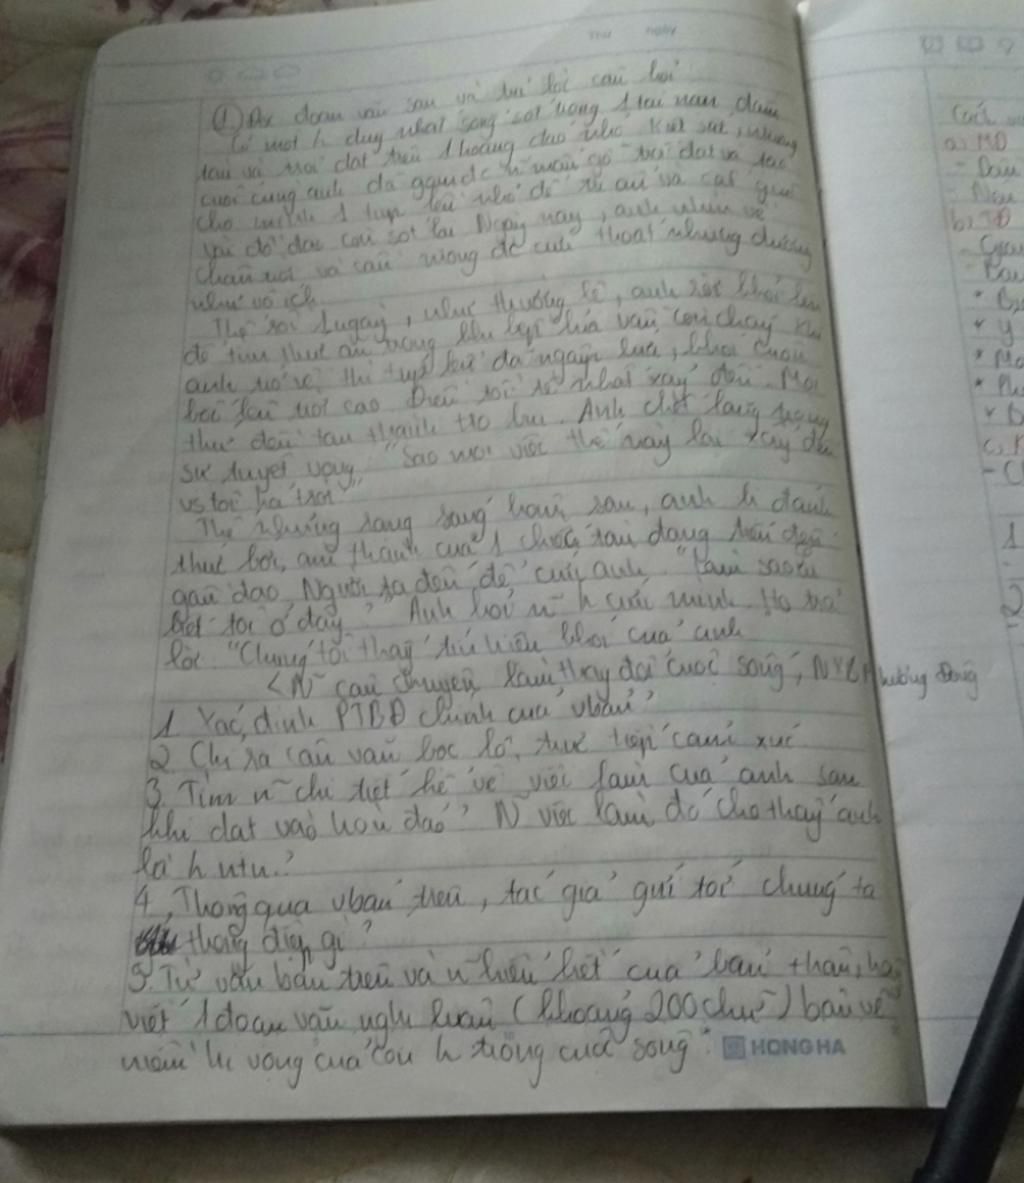 Thứ ngày
① Đọc đoạn văn sau và trả lời câu hỏi
Có một h duy nhất sống sót trong 1 tai nạn đắm
tàu và trôi dạt trên 1 hoang đảo nhỏ. Kiệt sức, nhưng
cuối cùng anh đã gom đc n~ mẩu gỗ trôi dạt và tạo
cho mình 1 túp lều nhỏ để trú ẩn và cất giữ
vài đồ đạc còn sót lại. Ngày ngày, anh nhìn về
chân trời và cầu mong đc cứu thoát nhưng dường
như vô ích
Thế rồi 1 ngày, như thường lệ, anh rời khỏi lều
để tìm thức ăn trong khi bếp lửa vẫn còn cháy. Khi
anh trở về thì túp lều đã ngập lửa, khói cuộn
bốc lên trời cao. Điều tồi tệ nhất xảy đến. Mọi
thứ đều tan thành tro bụi. Anh chết lặng trong
sự tuyệt vọng "Sao mọi việc thế này lại xảy đến
vs tôi hả trời"
Thế nhưng rạng sáng hôm sau, anh bị đánh
thức bởi âm thanh của 1 chiếc tàu đang tiến đến
gần đảo. Người ta đến để cứu anh. "Làm sao
biết tôi ở đây?" Anh hỏi n~ h cứu mình. Họ trả
lời "Chúng tôi thấy tín hiệu khói của anh
<N~ câu chuyện làm thay đổi cuộc sống, NXB Phương Đông
1 Xác định PTBĐ chính của vbản?
2 Chỉ ra câu văn bộc lộ trực tiếp cảm xúc
3. Tìm n~ chi tiết kể về việc làm của anh sau
khi dạt vào hòn đảo? N~ việc làm đó cho thấy anh
là h ntn?
4, Thông qua vbản trên, tác giả gửi tới chúng ta
thông điệp gì?
5. Từ văn bản trên và n~ hiểu biết của bản thân, hãy
viết 1 đoạn văn nghị luận (khoảng 200 chữ) bàn về
niềm hi vọng của con h trong cuộc sống".
HONG HA
a) MĐ
b) TĐ
1
2